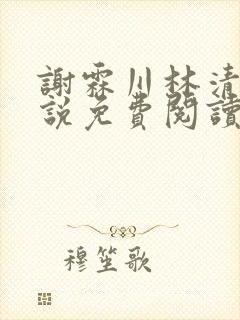 謝霖川林清
說免費閱讀
穆笙歌